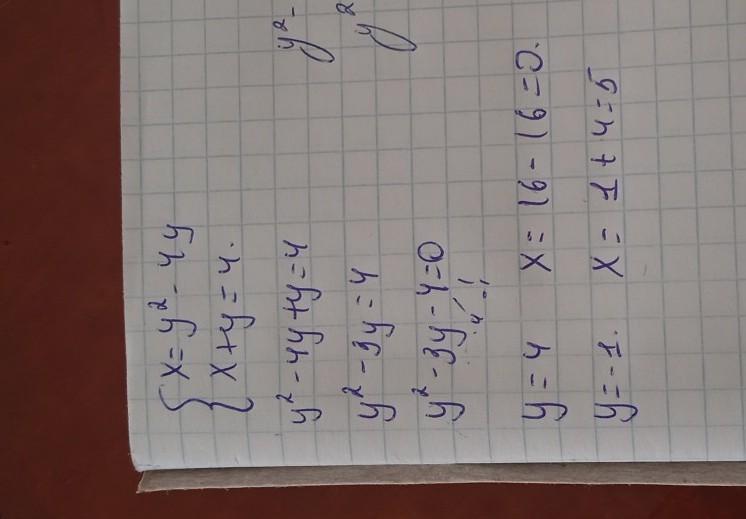 { x = y² - 4y
x + y = 4.
y² - 4y + y = 4
y² - 3y = 4
y² - 3y - 4 = 0
4 -1
y = 4 x = 16 - 16 = 0.
y = -1. x = 1 + 4 = 5
y² -
y²